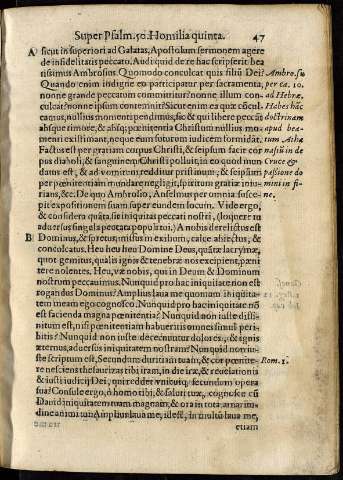 Super Psalm. 50. Homilia quinta. 47
A sicut in superiori ad Galatas, Apostolum sermonem agere
de infidelitatis peccato. Audi quid de re hac scripserit bea
tissimus Ambrosius: Quomodo conculcat quis filiũ Dei? Ambro. su
Quando enim indignè eo participatur per sacramenta, per ca. 10.
nonne grande peccatum committitur? nonne illum con- ad Hebræ.
culcat? nonne ipsum contemnit? Sicut enim ea quæ cõcul. Habes hãc
camus, nullius momenti pendimus, sic & qui libere peccãt doctrinam
absque timore, & absq; pœnitentia Christum nullius mo apud bea-
menti existimant, neque eum futurom iudicem formidãt. tum Atha
Factus est per gratiam corpus Christi, & seipsum facit cor nasiũ in de
pus diaboli, & sanguinem Christi polluit, in eo quod mun Cruce &
datus est, & ad vomitem redditur pristinum, & seipsum passione do
per pœnitentiam mundare negligit, spiritum gratiæ iniu- mini in fi-
rians, &c. De quo Ambrosio, Anselmus per omnia susce- ne.
pit expositionem suam super eundem locum. Vide ergo,
& considera quãta sit iniquitas peccati nostri, (loquere tu
aduersus singula peccata populi.) A nobis derelictus est
B Dominus, & spretus, missus in exilium, calce abiectus, &
conculcatus. Heu heu heu Domine Deus, quãtæ lacrymæ,
quot gemitus, qualis ignis & tenebræ nos excipient, pœni
tere nolentes. Heu, væ nobis, qui in Deum & Dominum
nostrum peccauimus. Nunquid pro hac iniquitate non est
rogandus Dominus? Amplius laua me quoniam iniquita-
tem meam ego cognosco. Nunquid pro hac iniquitate nõ
est facienda magna pœnitentia? Nunquid non iuste dissi-
nitum est, nisi pœnitentiam habueritis omnes simul peri-
bitis? Nunquid non iuste decernuntur dolor ex, & ignis
æternus, aduersus iniquitatem nostram? Nunquid non iu-
ste scriptum est, Secundum duritiam tuam, & cor pœnite- Rom. 2.
re nesciens thesaurizas tibi iram, in die iræ, & reuelationis
& iusti iudicij Dei, qui reddet vnicuiq; secundum opera
sua? Consule ergo, ô homo tibi, & saluti tuæ, cognosce cũ
Dauid iniquitatem tuam magnam, & ora in tota amaritu-
dine animi tui: Amplius laua me, idest, in multũ laua me,
etiam